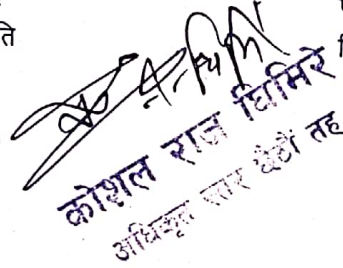 ति
कोशल राज घिमिरे
अधिकृत स्तर छैटौं तह